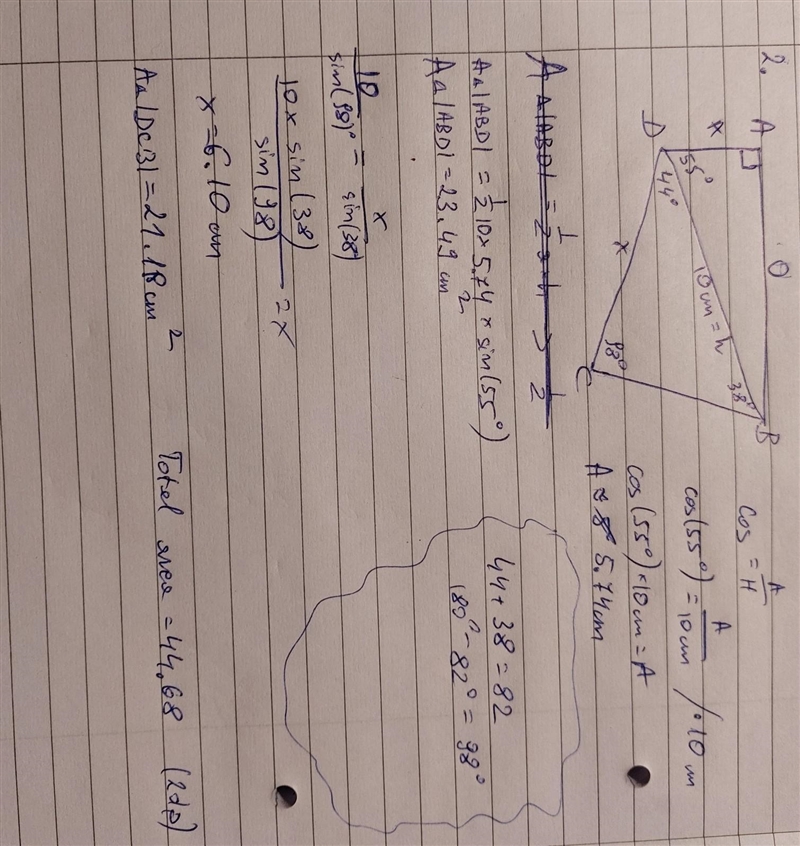 2.
A
O
B
x
55°
44°
D
10 cm = h
38°
x
98°
C
cos = A/H
cos(55°) = A/10cm /·10 cm
cos(55°)×10cm = A
A ≈ 5.74cm
Aa|ABD| = 1/2 10×5.74 × sin(55°)
Aa|ABD| = 23.49 cm²
44 + 38 = 82
180° - 82° = 98°
10/sin(98)° = x/sin(38)
10 x sin(38)/sin(98) = x
x = 6.10 cm
Aa|DCB| = 21.18 cm²
Total area = 44.68 (2dp)